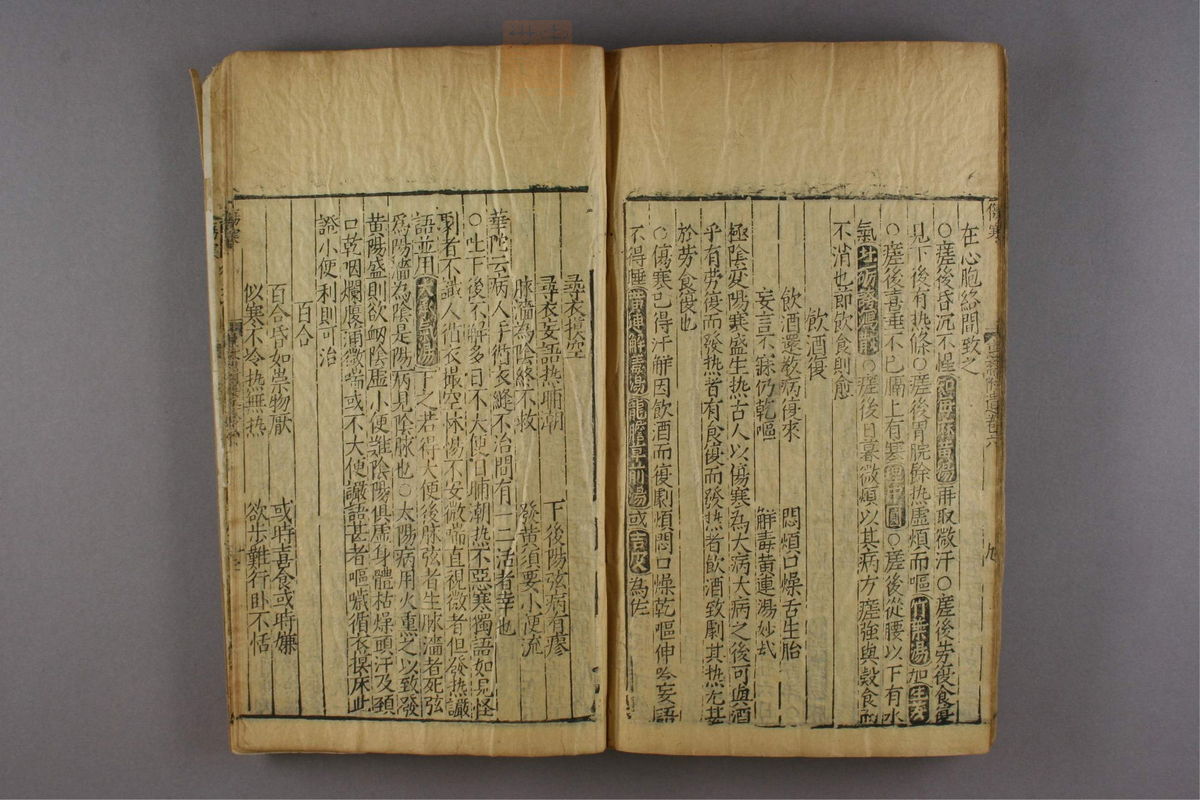 在心胞絡間致之
○瘥後昏沉不醒知母麻黃湯再取微汗○瘥後劳復食復
見下後有热條○瘥後胃脘餘热虚煩而嘔竹葉湯加生姜
○瘥後喜唾不已膈上有寒理中圓○瘥後從腰以下有水
氣牡砺澤瀉散○瘥後日暮微煩以其病方瘥強與穀食而
不消也節飲食則愈
飲酒復
飲酒還教病復來 悶煩口燥舌生胎
妄言不寐仍乾嘔 解毒黄連湯妙哉
極陰变陽寒盛生热古人以傷寒為大病大病之後可與酒
乎有劳復而發热者有食復而發热者飲酒致劇其热尤甚
於劳食復也
○傷寒已得汗解因飲酒而復劇煩悶口燥乾嘔伸吟妄語
不得睡黃連解毒湯龍膽草前湯或為佐
傷寒
尋衣撮空
尋衣妄語热晡潮 下後陽弦病有瘳
脉濇為陰終不救 發黃須要小便流
華陀云病人手術衣縫不治間有一二活者幸也
○吐下後不解多日不大便日晡潮热不惡寒獨語如見怪
劇者不識人衔衣撮空怵惕不安微喘直視微者但發热譫
語並用大承氣湯下之若得大便後脉弦者生脉濇者死弦
爲陽濇為陰是陽病見陰脉也○太陽病用火熏之以致發
黃陽盛則欲衂陰虚小便难陰陽俱虚身體枯燥頭汗及頚
口乾咽爛腹滿微喘或不大便譫語甚者嘔噦循衣摸床此
證小便利則可治
百合
百合昏如祟物厭 或時喜食或時嫌
似寒不冷热無热 欲步難行卧不恬